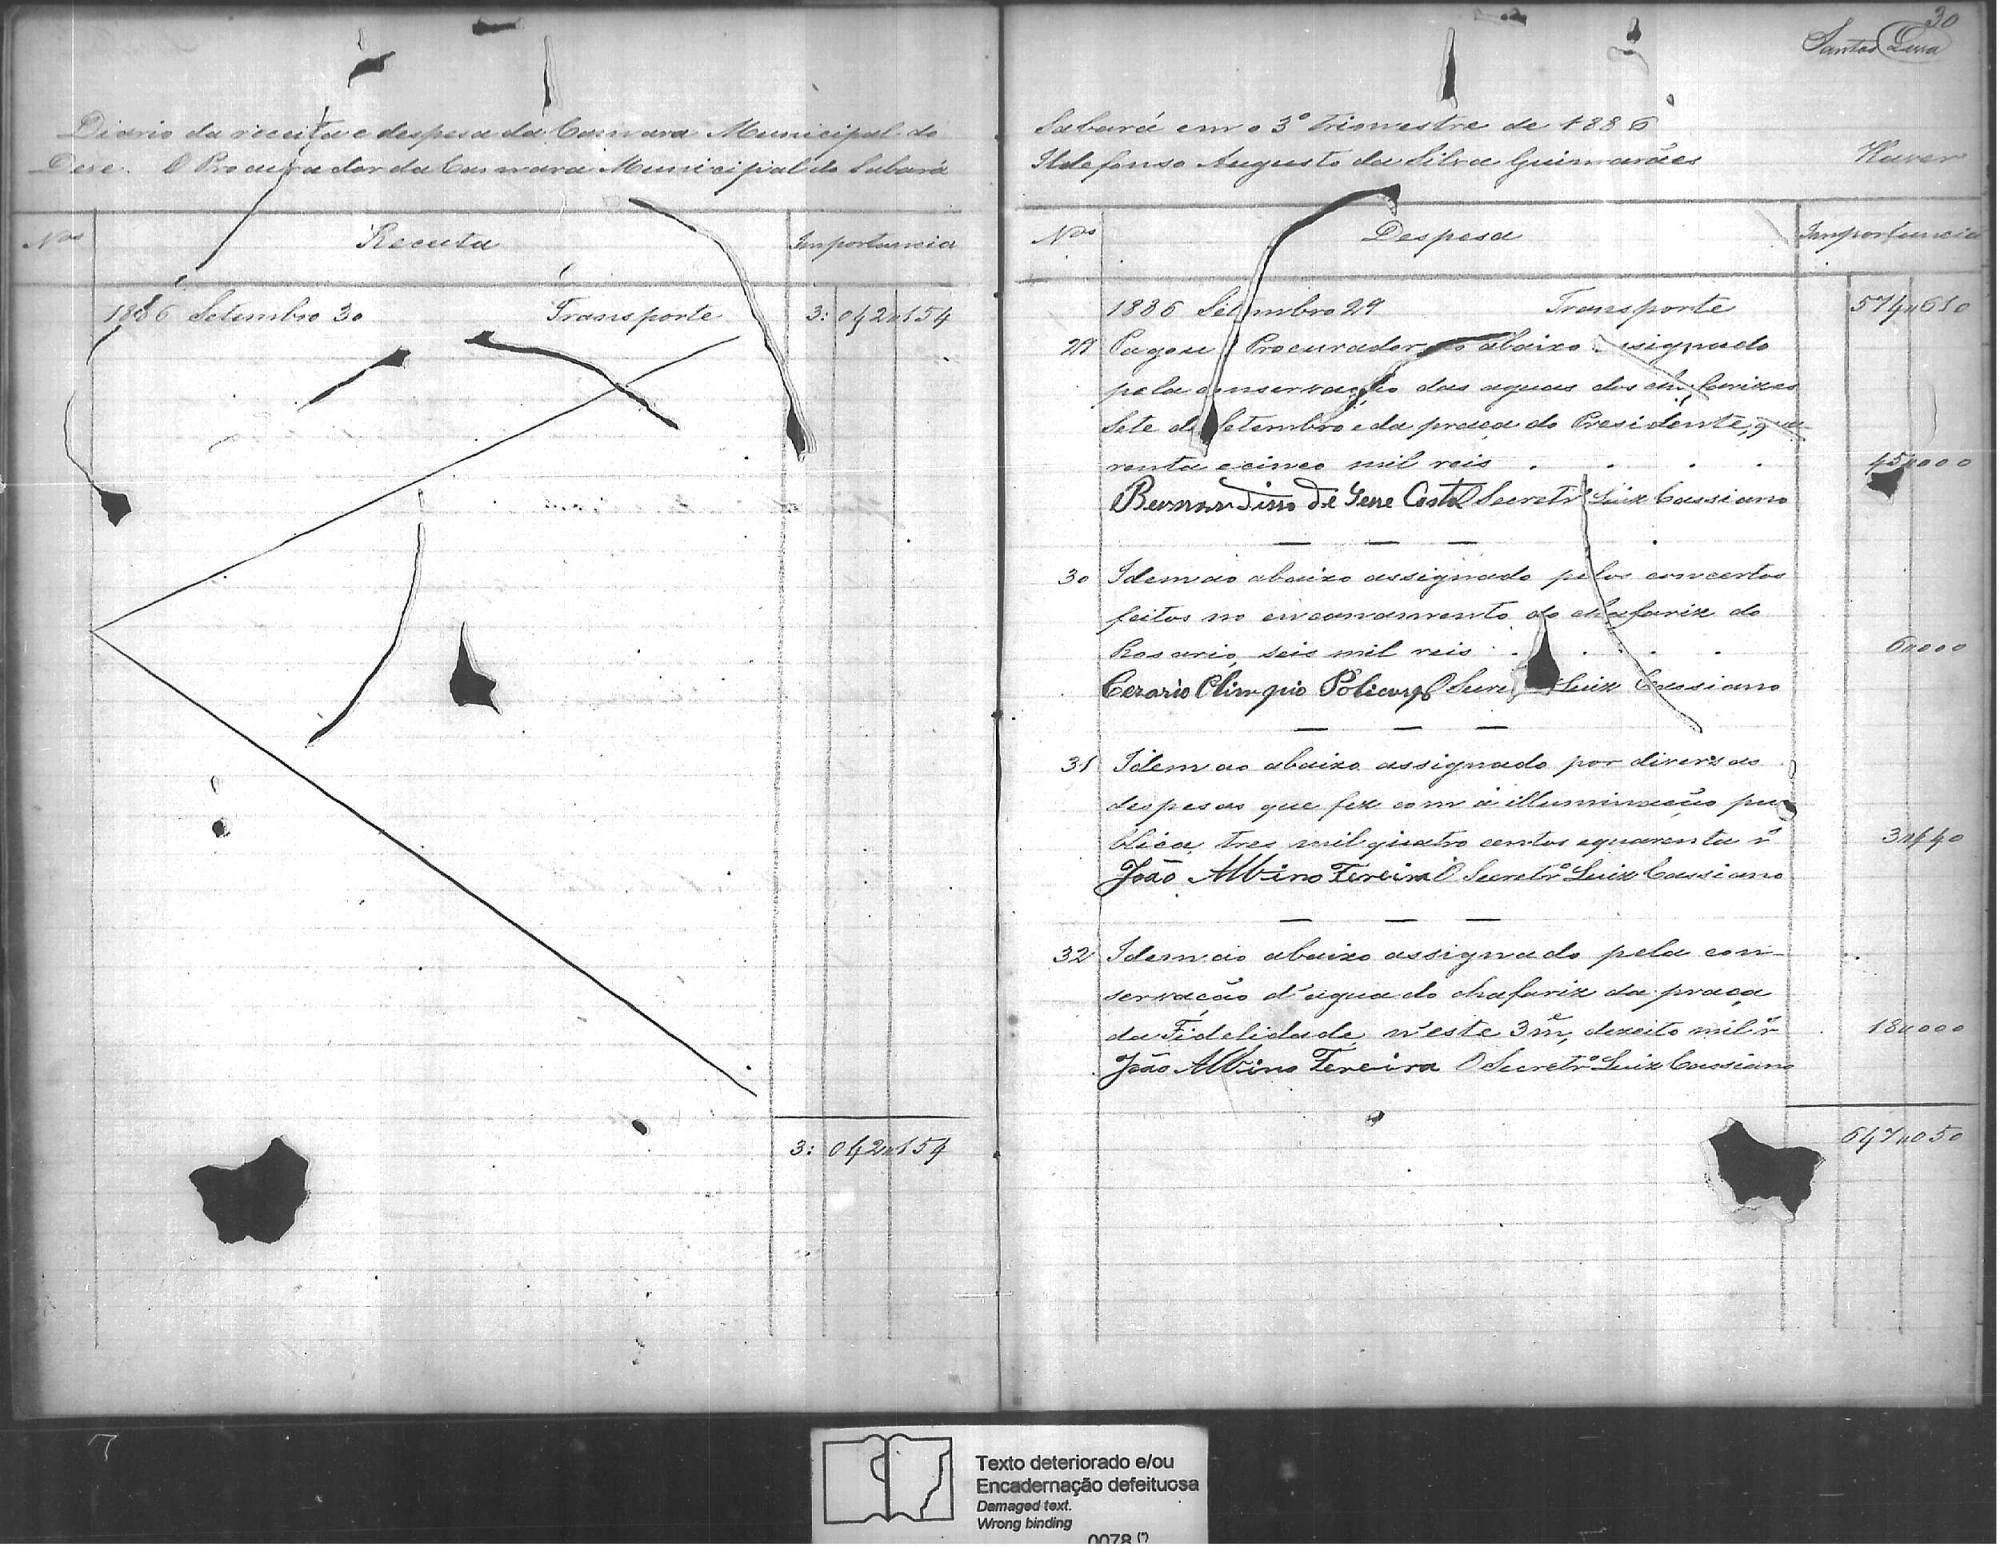 30
Santos Lima
Diario da receita e despesa da Camara Municipal do
Deve. O Procurador da Camara Municipal do Sabará
Nos Receita Importancia
1886 Setembro 30 Transporte 3:042$154
3:042$154
Sabará em o 3º trimestre de 1886
Ildefonso Augusto da Silva Guimarães Haver
Nos Despesa Importancia
1886 Setembro 29 Transporte 574$610
29 Pagou Procurador ao abaixo assignado
pela conservação das aguas dos chafarizes
Sete de Setembro e da praça do Presidente, qua
renta e cinco mil reis . . . . 45$000
Bernardino de Sene Costa O Secretrº Luiz Cassiano
30 Idem ao abaixo assignado pelos concertos
feitos no encanamento do chafariz do
Rosario, seis mil reis . . . . 6$000
Cezario Olimpio Policarpo O Secretrº Luiz Cassiano
31 Idem ao abaixo assignado por diversas
despesas que fez com a illuminação pu
blica, tres mil quatro centos e quarenta rs 3$440
João Albino Fereira O Secretrº Luiz Cassiano
32 Idem ao abaixo assignado pela con-
servação d'agua do chafariz da praça
da Fidelidade, n'este 3m.e, dezoito mil rs 18$000
João Albino Fereira O Secretrº Luiz Cassiano
647$050
Texto deteriorado e/ou
Encadernação defeituosa
Damaged text.
Wrong binding
0078 (*)